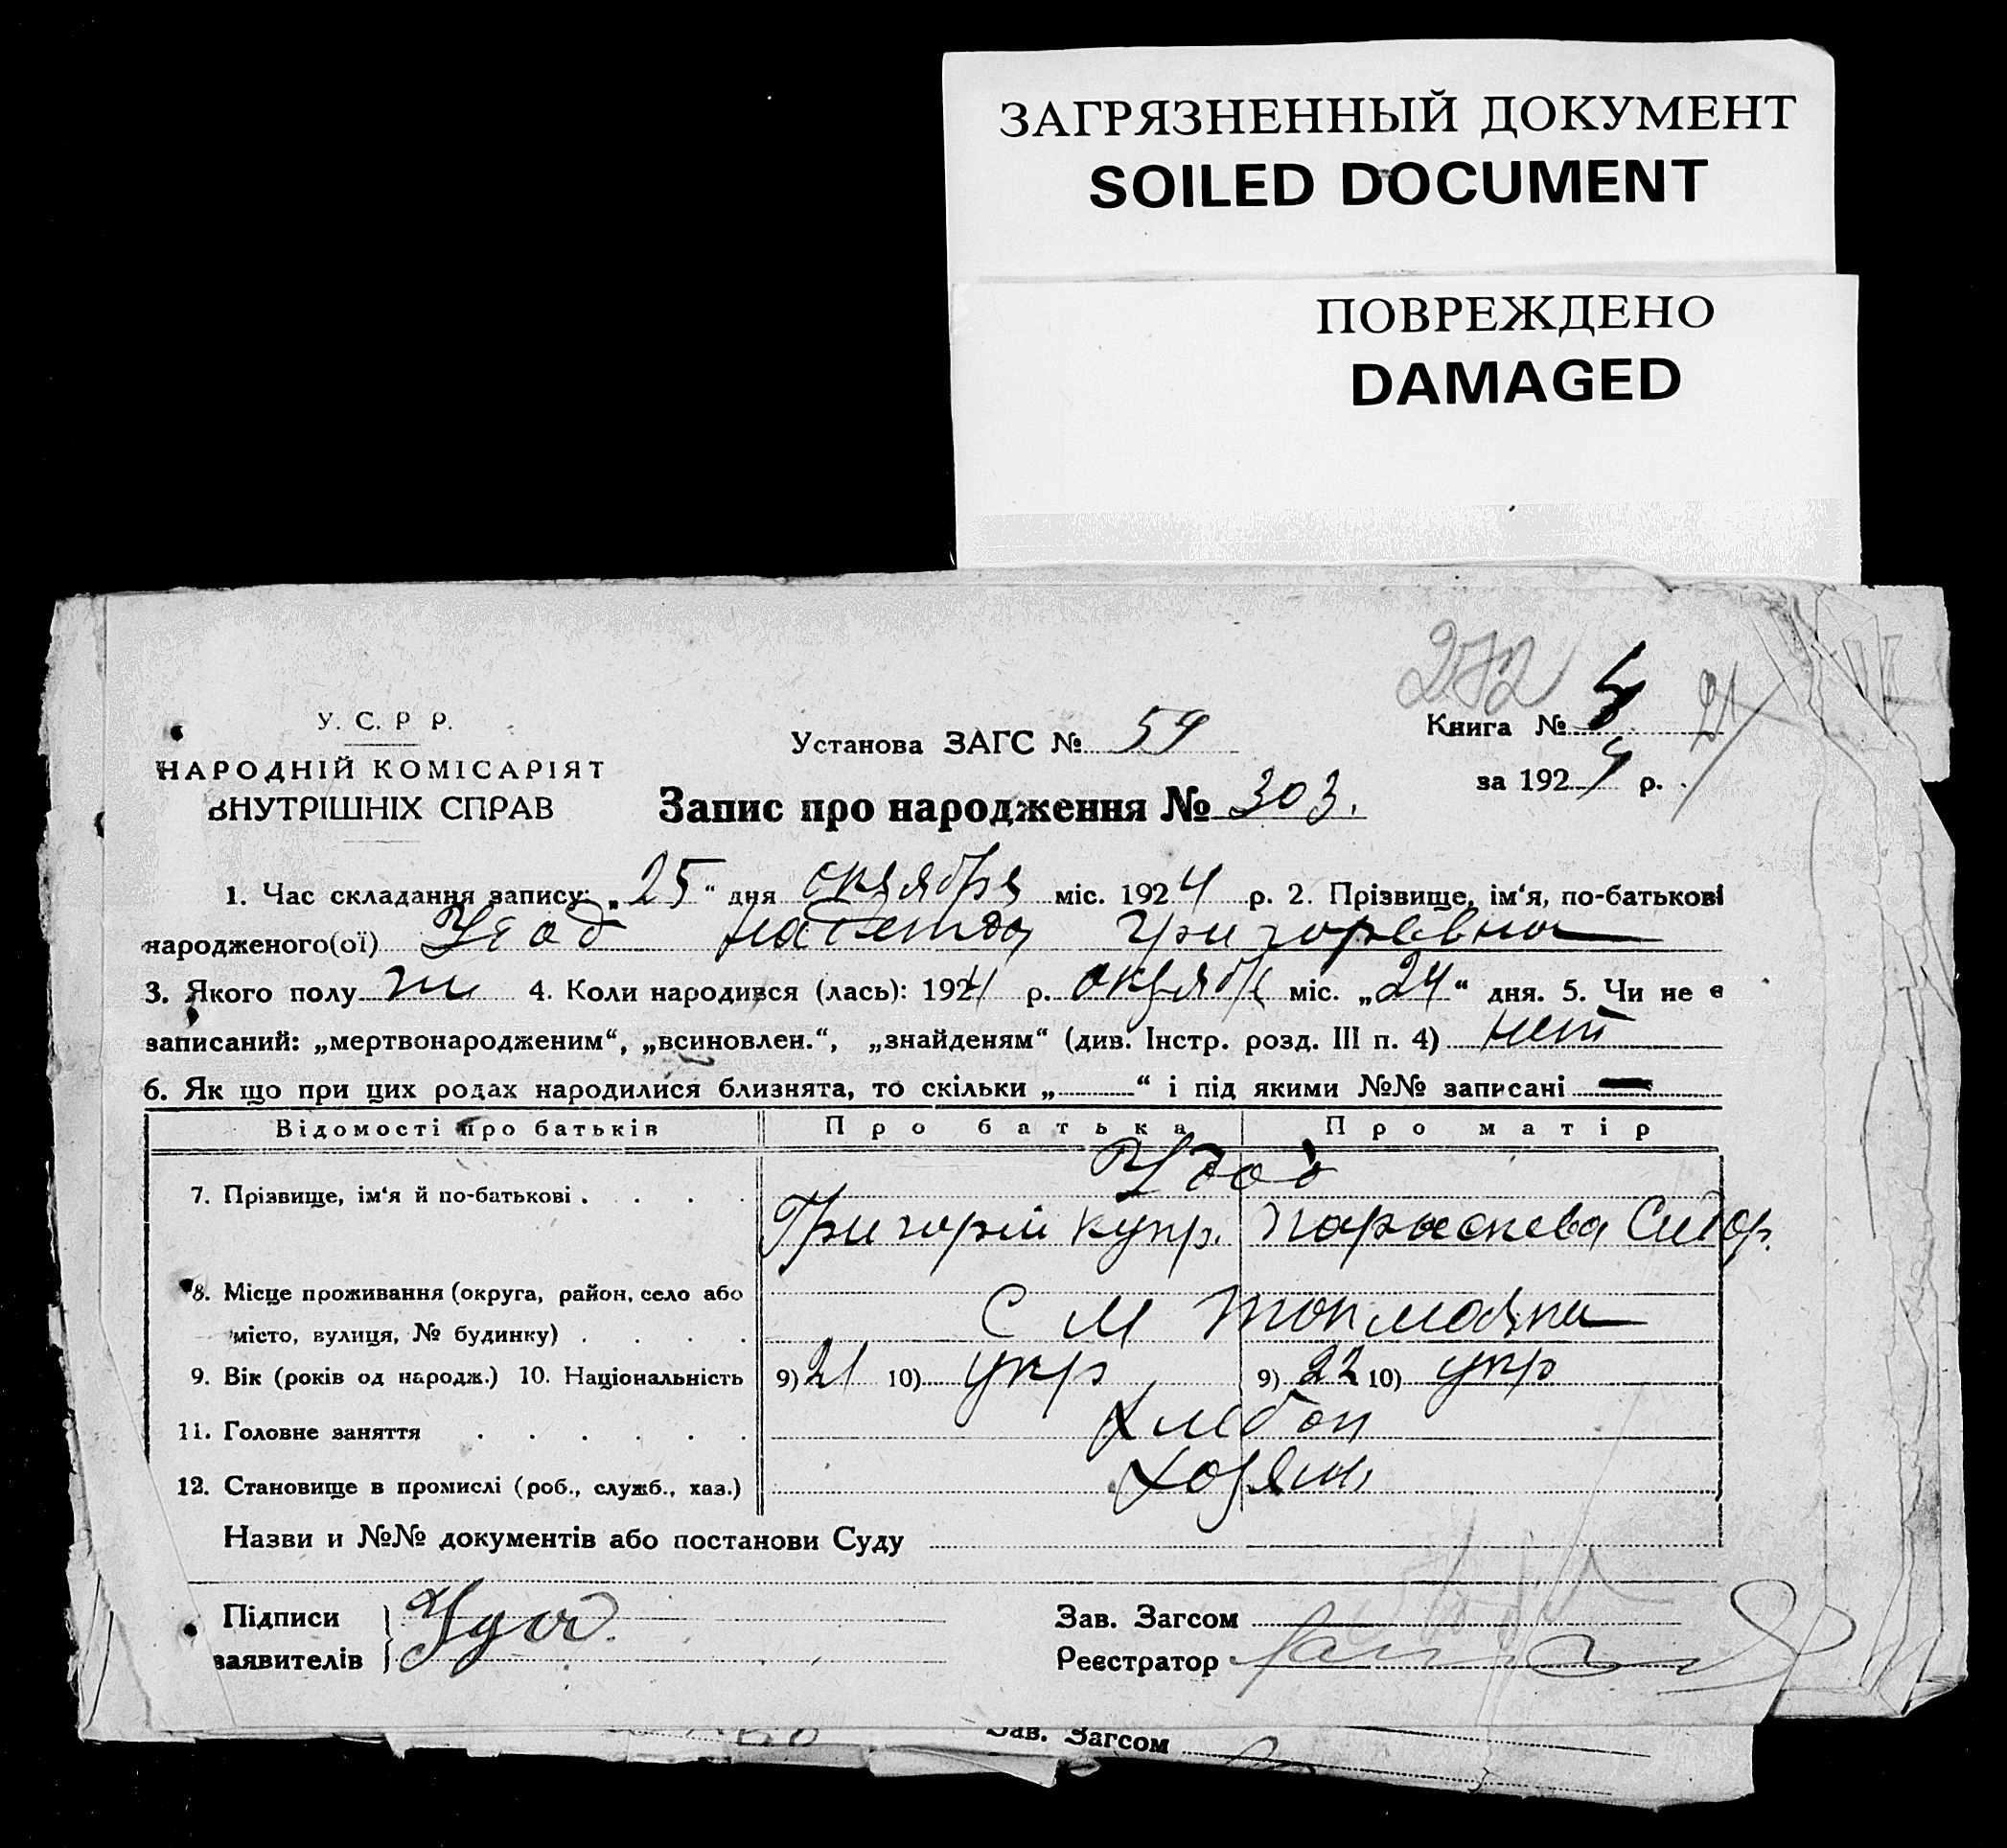 ЗАГРЯЗНЕННЫЙ ДОКУМЕНТ
SOILED DOCUMENT
ПОВРЕЖДЕНО
DAMAGED
272
21
У. С. Р Р.
НАРОДНІЙ КОМІСАРІЯТ
ВНУТРІШНІХ СПРАВ
Установа ЗАГС № 54
Книга №
за 1924 р.
Запис про народження № 303.
1. Час складання запису: „25“ дня октября міс. 1924 р. 2. Прізвище, ім‘я, по-батькові
народженого(ої) Удод Григорьевна
3. Якого полу ж 4. Коли народився (лась): 1924 р. октября міс. „24“ дня. 5. Чи не є
записаний: „мертвонародженим“, „всиновлен.“, „знайденям“ (див. Інстр. розд. III п. 4) нет
6. Як що при цих родах народилися близнята, то скільки „ “ і під якими №№ записані —
Відомості про батьків Про батька Про матір
Удод
7. Прізвище, ім‘я й по-батькові
Григорій Купр. Параскева Сидор.
8. Місце проживання (округа, район, село або
місто, вулиця, № будинку) С М Токмачки
9. Вік (років од народж.) 10. Національність 9) 21 10) укр 9) 22 10) укр
11. Головне заняття Хлебоп
12. Становище в промислі (роб., служб., хаз.) хозяин
Назви и №№ документів або постанови Суду
Підписи
заявителів
Удод.
Зав. Загсом
Реєстратор
Зав. Загсом